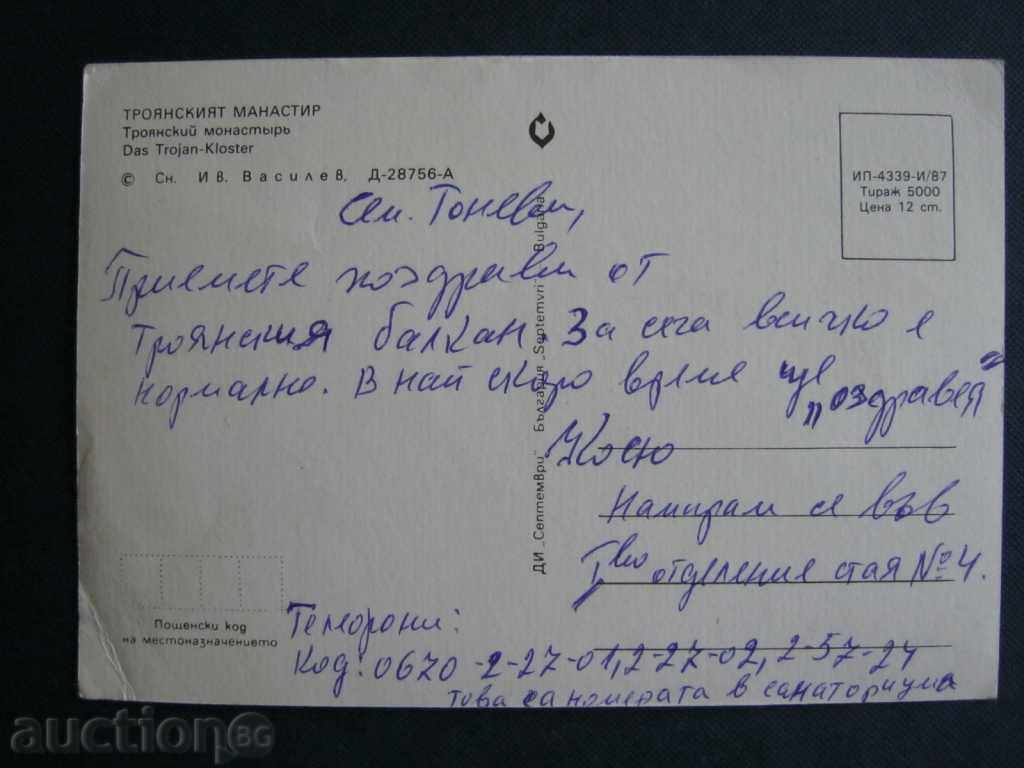 ТРОЯНСКИЯТ МАНАСТИР
Троянский монастырь
Das Trojan-Kloster
© Сн. Ив. Василев, Д-28756-А
ИП-4339-И/87
Тираж 5000
Цена 12 ст.
ДИ „Септември" България „Septemvri" Bulgaria
Сем. Тоневи,
Приемете поздрави от
Троянския балкан. За сега всичко е
нормално. В най скоро време ще
„оздравея"
Косю
Намирам се във
I во отделение стая № 4.
Пощенски код
на местоназначението
Телефони:
Код: 0670 - 2-27-01, 2-27-02, 2-57-24
това са номерата в санаториума
auction BG